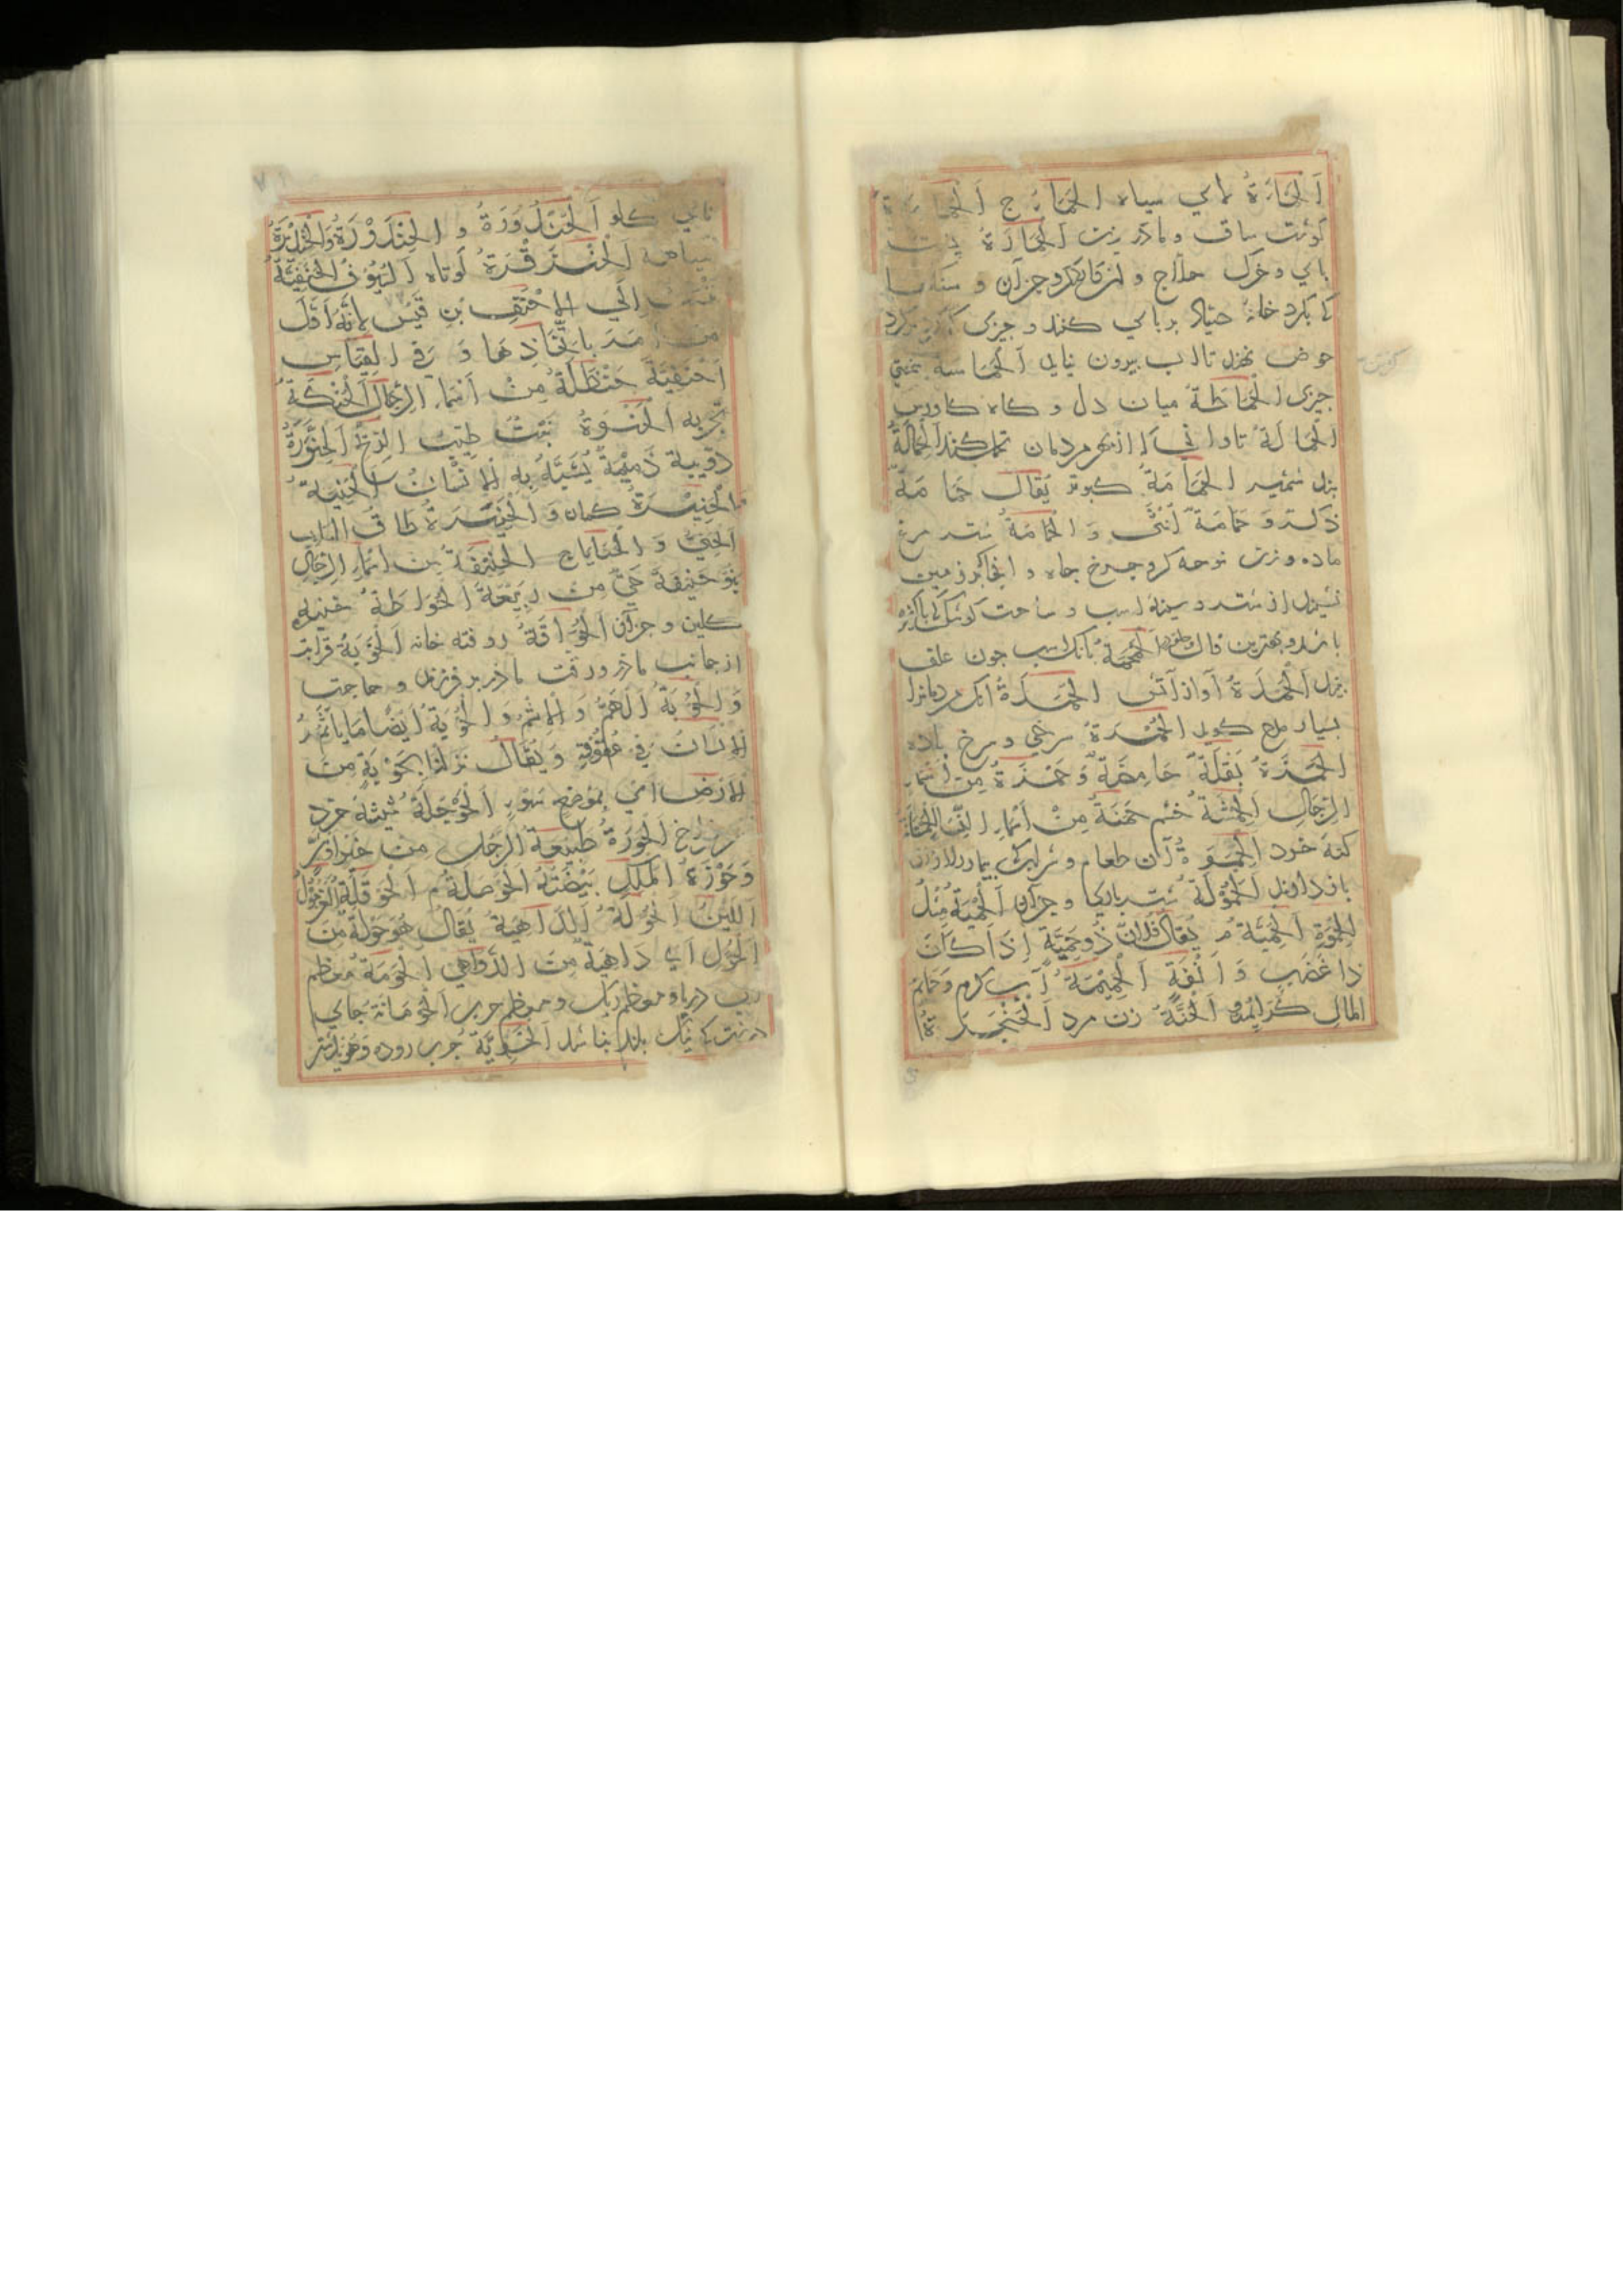 اَلْحِمَارَةُ لاي سياه الحَمَايِرُ ج اَلْحَمَارَّةُ
كوشت ساق و مادر زن اَلْحِمَارَةُ پشت
باي و خرک حلاج و
كا بكرد خانۀ صياد بر باي كنند و جيزى كا كرد بكرد
حوض نهند تا آب بيرون نيايد اَلْحَمَاسَةُ سختي
جيزى الْحَمَاطَةُ ميان دل و كاه كاورس
الْحَمَالَةُ تاواني كا از بهر مردمان تحمل كنند اَلْحِمَالَةُ
بند شمشير الحَمَامَةُ كبوتر يُقَالُ حَمَامَةٌ
ذَكَرٌ وَ حَمَامَةٌ اُنْثَى وَ الْحَمَامَةُ شتر مرغ
ماده و زن نوحه كر و جرخ جاه و انجا كبر زمين
نشيند از شتر و سينۀ اسب و ساحت كوشك
باشد و بهترين مال اَلْحَمْحَمَةُ بانك اسب جون علف
بيند اَلْحَمَدَةُ آواز آتش الحُمَدَةُ انك مردمانرا
بسيار مدح كويد الحُمْرَةُ سرخى و سرخ باده
الْحَمْزَةُ بَقْلَةٌ حَامِضَةٌ وَ حَمْزَةُ مِنْ اَسْمَاءِ
الرِّجَالِ اَلْحِمْشَةُ خشم حَمْنَةُ مِنْ اَسْمَاءِ النِّسَاءِ
كنۀ خرد اَلْحِمْوَةُ آن طعام و شراب كى بيمار را از ان
باز دارند اَلْحَمُوْلَةُ شتر باركى و جزآن اَلْحِمْيَةُ مِثْلُ
الْحِمْوَةِ اَلْحَمِيَّةُ م يُقَالُ فُلاَنٌ ذُوحَمِيَّةٍ اِذَا كَانَ
ذَا غَضَبٍ وَ اَنَفَةٍ اَلْحَمِيْمَةُ آب كرم وَ حَمَائِمُ
المَالِ كَرَائِمُهُ اَلْحَنَّةُ زن مرد اَلْحَنْجَرَةُ
ناي كلو اَلْحُنْدُوْرَةُ و الْحِنْدَوْرَةُ وَ الْحِنْدِيْرَةُ
سياهه اَلْحِنْزَقْرَةُ كوتاه اَلسُّيُوْفُ الحَنَفِيَّةُ
تُنْسَبُ اِلَى الاَحْنَفِ بْنِ قَيْسٍ لِاَنَّهُ اَوَّلُ
مَنْ اَمَرَ بِاتِّخَاذِهَا وَ فِي الْقِيَاسِ
اَحْنَفِيَّة حَنْظَلَةُ مِنْ اَسْمَاءِ الرِّجَالِ اَلْحُنْكَةُ
تجربه اَلْحَنْوَةُ نَبْتٌ طَيِّبُ الرِّيْحِ اَلْحِنَّوْرَةُ
دُوَيْبَةٌ ذَمِيْمَةٌ يُشَبَّهُ بِهِ الْاِنْسَانُ اَلْحَنِيَّةُ
وَ الْحَنِيْرَةُ كمان وَ الْحَنِيْرَةُ طاقُ البَابِ
اَلْحَنِيُّ وَ الْحَنَايَا ج الْحَنِيْفَةُ مِنْ اَسْمَاءِ الرِّجَالِ
بَنُوْ حَنِيْفَةَ حَيٌّ مِنْ رَبِيْعَةَ الْحُوَاطَةُ خنبۀ
كلين و جزآن اَلْحُوَاقَةُ روفته خانه اَلْحُوْبَةُ قرابت
از جانب مادر و رقت مادر بر فرزند و حاجت
وَ الْحُوْبَةُ اَلْهَمُّ وَ الْاِثْمُ وَ الْحُوْبَةُ اَيْضًا مَا يَأْثَمُ
الْاِنْسَانُ فِي عُقُوْقِهِ وَ يُقَالُ نَزَلْنَا بِحُوْبَةٍ مِنَ
الْاَرْضِ اَيْ بِمَوْضِعِ سُوْءٍ اَلْحَوْجَلَةُ شيشه خرد
سر فراخ اَلْحَوْزَةُ طَبِيْعَةُ الرَّجُلِ مِنْ خَيْرٍ اَوْ شَرٍّ
وَ حَوْزَةُ الْمَلِكِ بَيْضَتُهُ اَلْحَوْصَلَةُ م اَلْحَوْقَلَةُ الغُرْمُوْلُ
اَللَّيِّنُ اَلْحُوَلَةُ اَلدَّاهِيَةُ يُقَالُ هُوَ حُوَلَةٌ مِنَ
الْحُوَلِ اَيْ دَاهِيَةٌ مِنَ الدَّوَاهِي اَلْحَوْمَةُ معظم
آب دريا و معظم ريك و معظم حرب اَلْحَوْمَانَةُ جاي
درشت كا نيك بلند نباشد اَلْحَوِيَّةُ جرب روده وَ هو